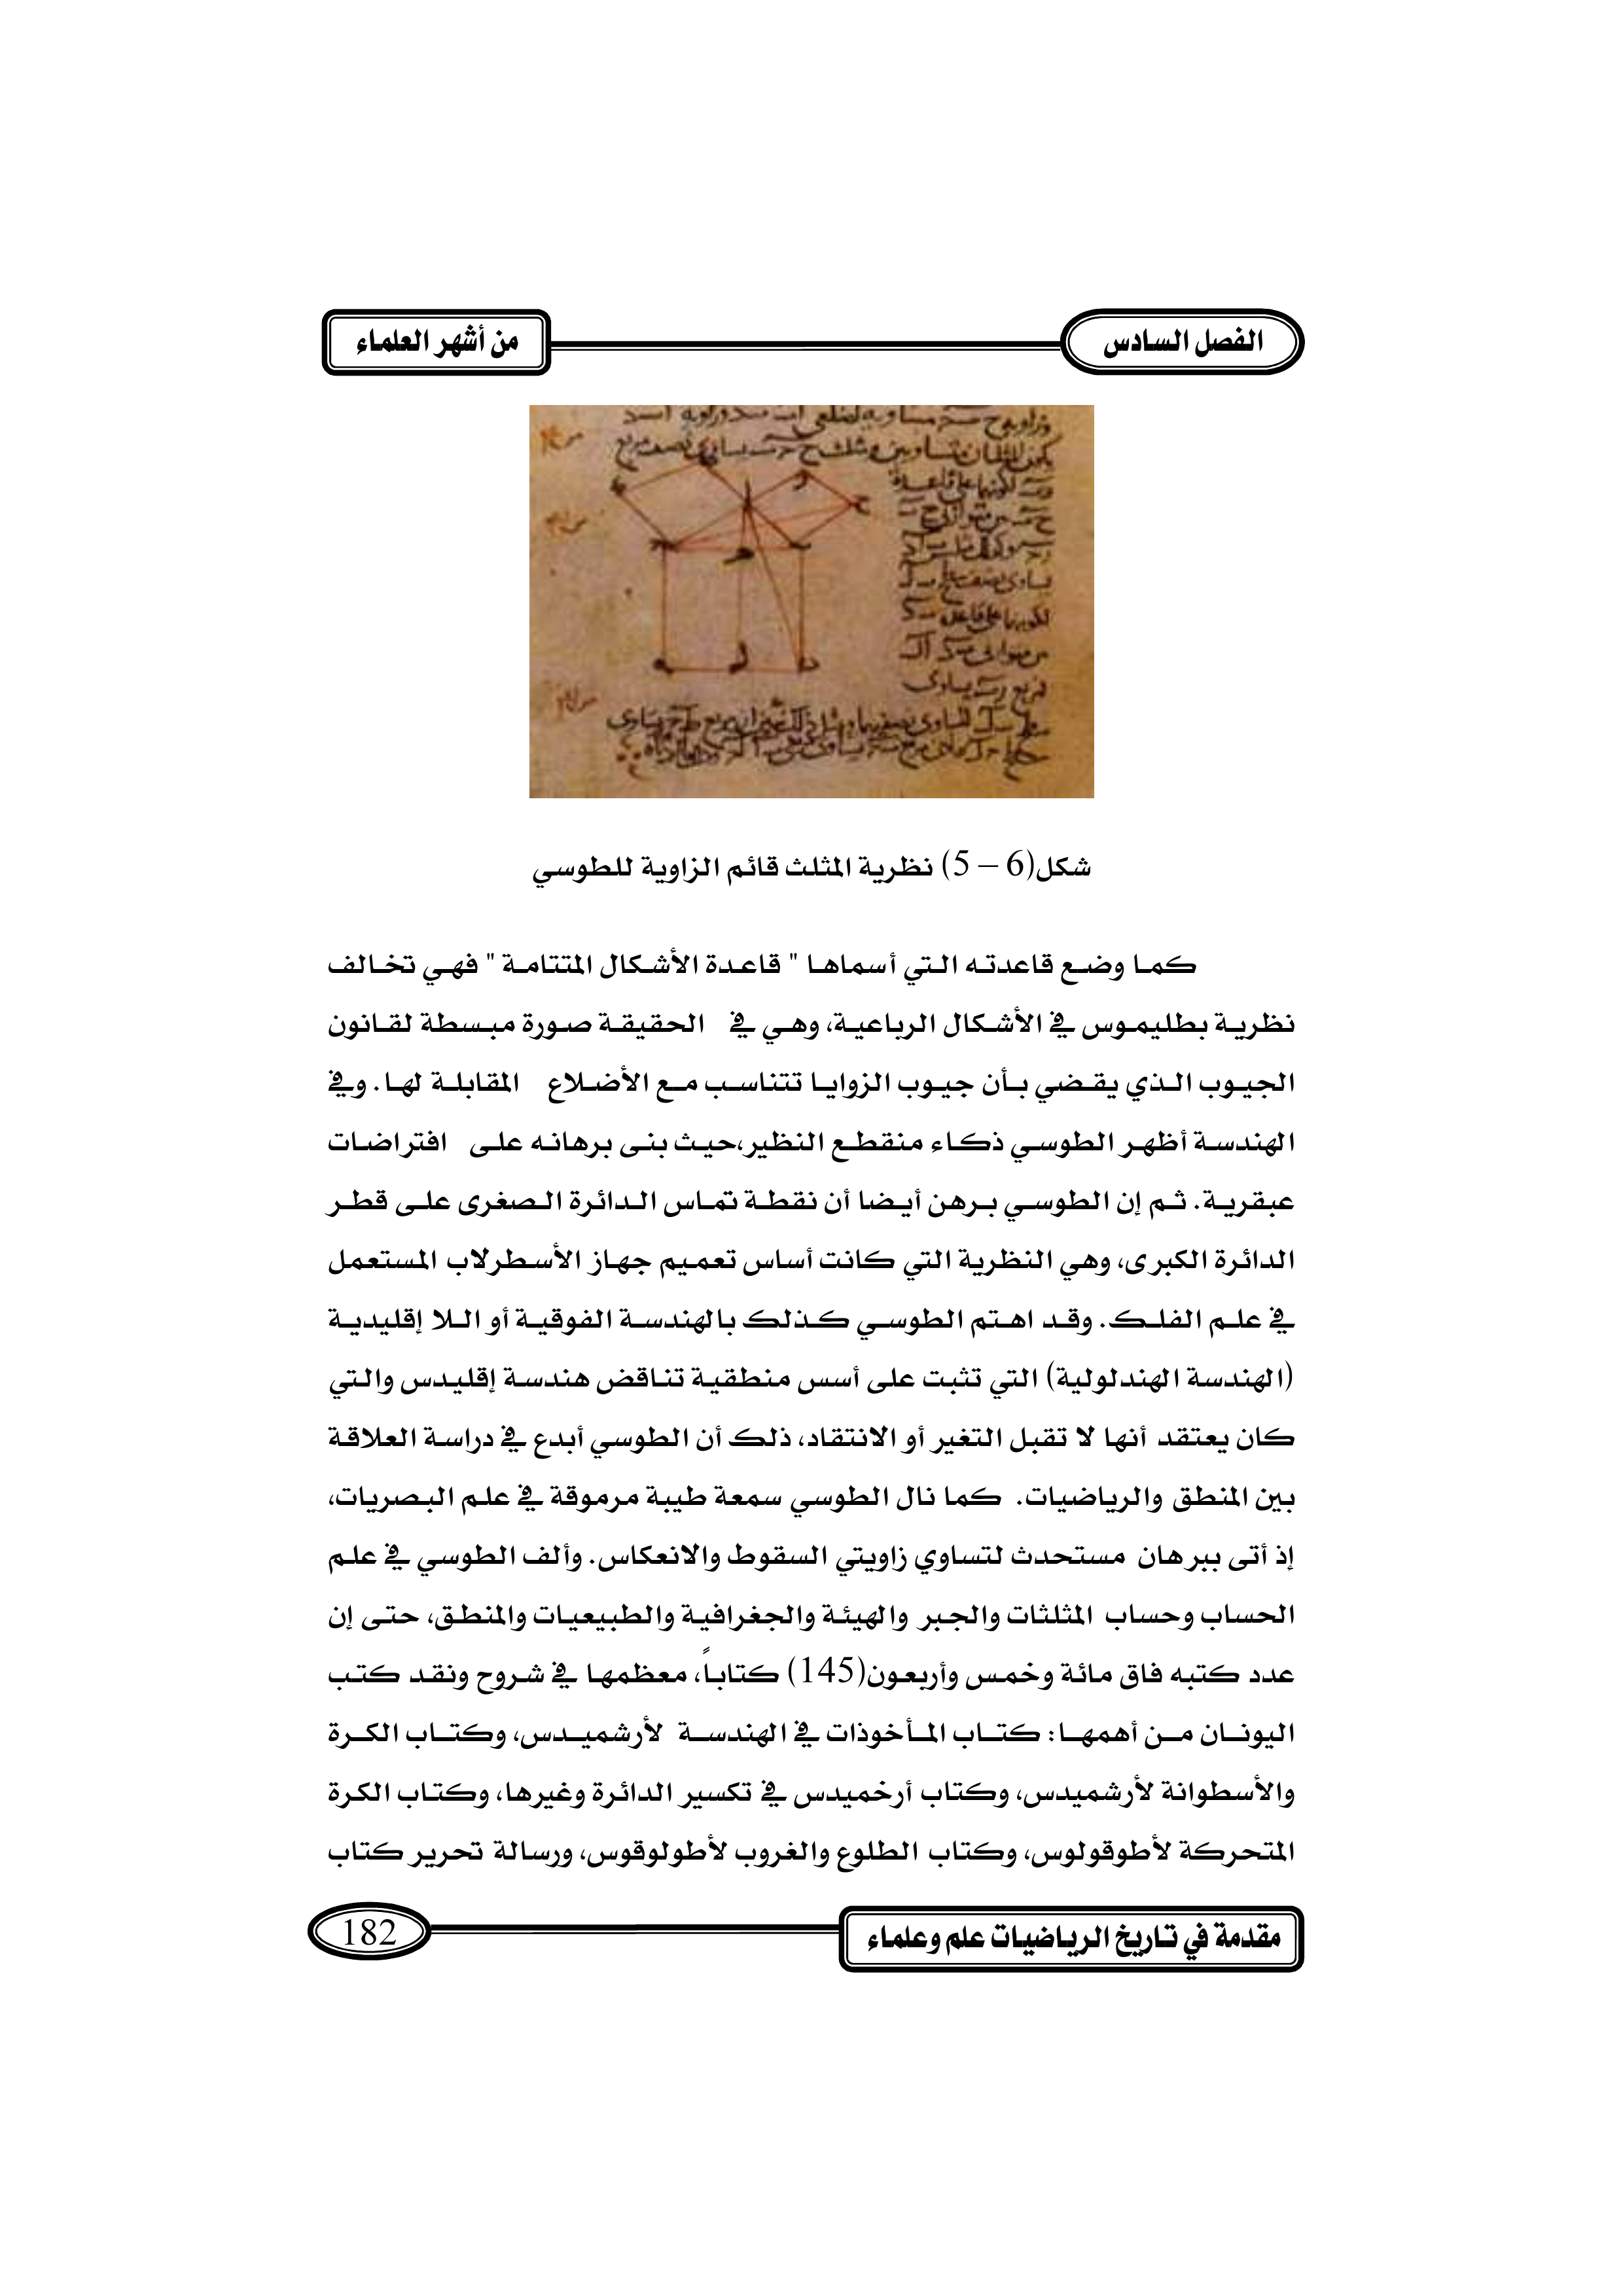 الفصل السادس
من أشهر العلماء
شكل(6 – 5) نظرية المثلث قائم الزاوية للطوسي
كما وضع قاعدته التي أسماها " قاعدة الأشكال المتتامة " فهي تخالف
نظرية بطليموس في الأشكال الرباعية، وهي في الحقيقة صورة مبسطة لقانون
الجيوب الذي يقضي بأن جيوب الزوايا تتناسب مع الأضلاع المقابلة لها. وفي
الهندسة أظهر الطوسي ذكاء منقطع النظير،حيث بنى برهانه على افتراضات
عبقرية. ثم إن الطوسي برهن أيضا أن نقطة تماس الدائرة الصغرى على قطر
الدائرة الكبرى، وهي النظرية التي كانت أساس تعميم جهاز الأسطرلاب المستعمل
في علم الفلك. وقد اهتم الطوسي كذلك بالهندسة الفوقية أو اللا إقليدية
(الهندسة الهندلولية) التي تثبت على أسس منطقية تناقض هندسة إقليدس والتي
كان يعتقد أنها لا تقبل التغير أو الانتقاد، ذلك أن الطوسي أبدع في دراسة العلاقة
بين المنطق والرياضيات. كما نال الطوسي سمعة طيبة مرموقة في علم البصريات،
إذ أتى ببرهان مستحدث لتساوي زاويتي السقوط والانعكاس. وألف الطوسي في علم
الحساب وحساب المثلثات والجبر والهيئة والجغرافية والطبيعيات والمنطق، حتى إن
عدد كتبه فاق مائة وخمس وأربعون(145) كتاباً، معظمها في شروح ونقد كتب
اليونان من أهمها: كتاب المأخوذات في الهندسة لأرشميدس، وكتاب الكرة
والأسطوانة لأرشميدس، وكتاب أرخميدس في تكسير الدائرة وغيرها، وكتاب الكرة
المتحركة لأطوقولوس، وكتاب الطلوع والغروب لأطولوقوس، ورسالة تحرير كتاب
مقدمة في تاريخ الرياضيات علم وعلماء
182